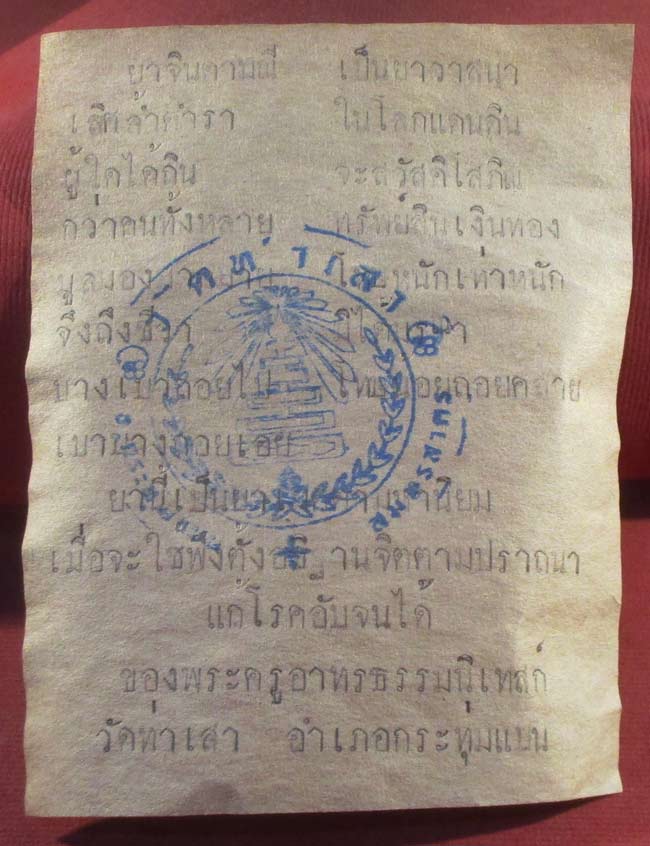 ยาจินดามณี เป็นยาวาสนา
เลิศล้ำตำรา ในโลกแดนดิน
ผู้ใดได้กิน จะสวัสดิโสภิณ
กว่าคนทั้งหลาย ทรัพย์สินเงินทอง
หนักเท่าหนัก
จึงถึงชีวา
บางเบาถอยไป
เบาบางถอยเอย
ยานี้เป็นยา
เมื่อจะใชพึงตั้งอธิฐานจิตตามปราถนา
แก้โรคอับจนได้
ของพระครูอาทรธรรมนิเทสก์
วัดท่าเสา อำเภอกระทุ่มแบน
วัดท่าเสา
สมุทรสาคร